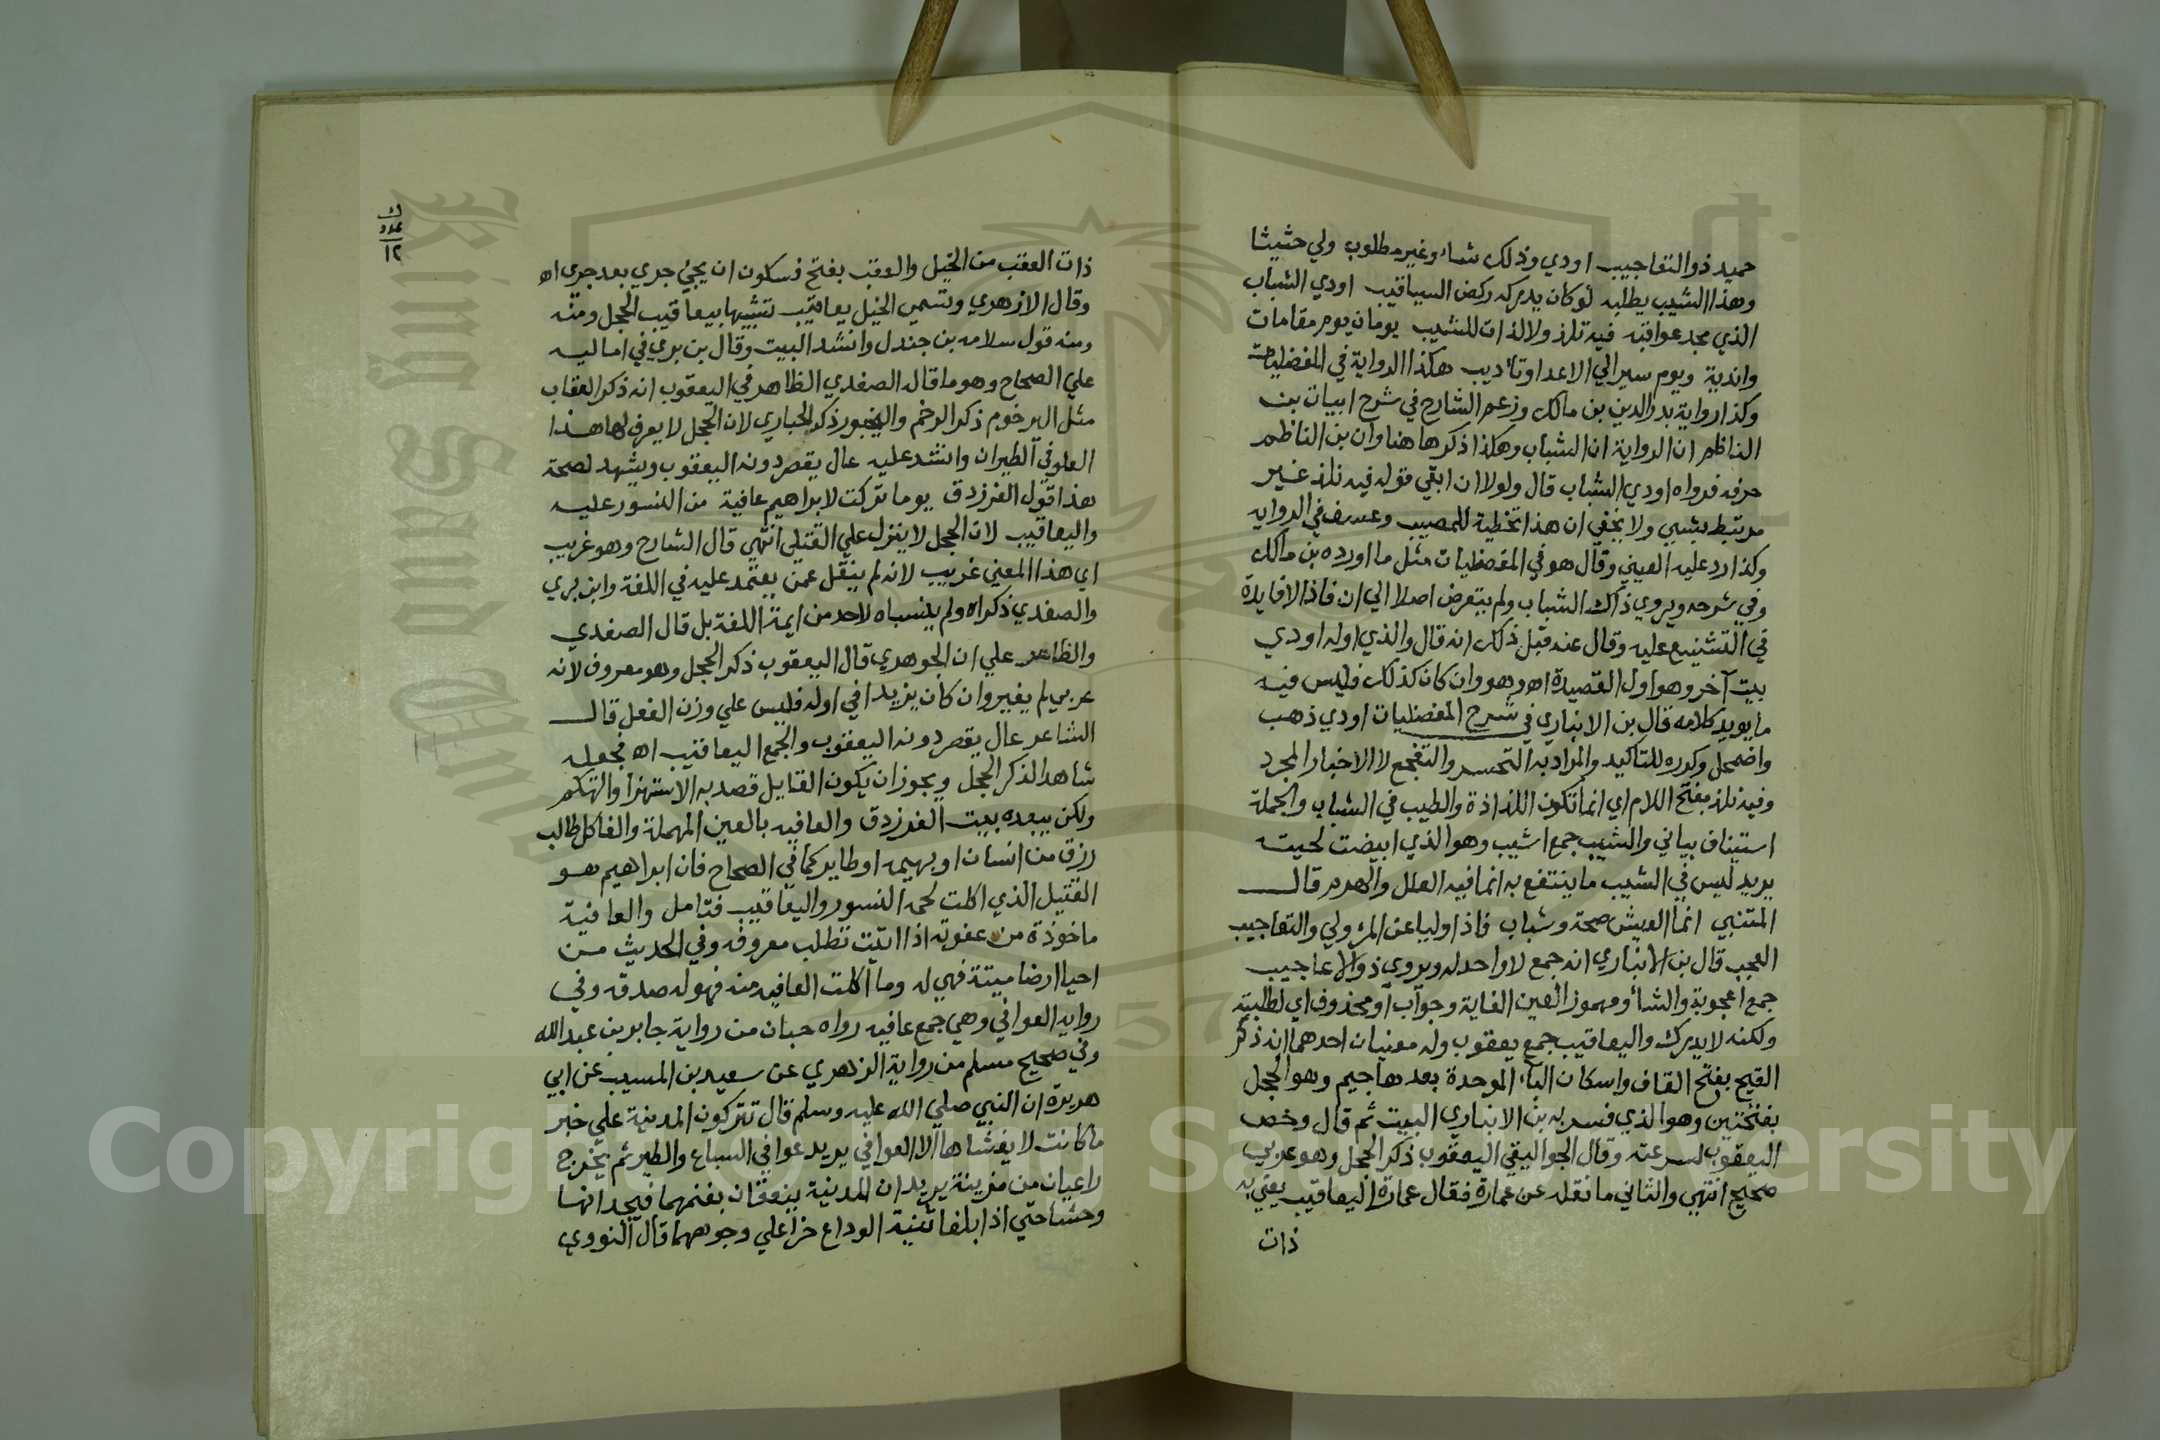 حميد ذو التعاجيب اودي وذلك شاء وغير مطلوب ولي حثيثا
وهذا الشيب يطلبه لو كان يدركه ركض اليعاقيب اودي الشباب
الذي مجد عواقبه فيه نلذ ولا لذات للشيب يومان يوم مقامات
واندية ويوم سير الي الاعدا وتاديب هكذا الرواية في المفضليات
وكذا رواية بدر الدين بن مالك وزعم الشارح في شرح ابيات بن
الناظم ان الرواية ان الشباب وهكذا ذكرها هنا وان بن الناظم
حرفه فرواه اودي الشباب قال ولولا ان ابقي قوله فيه نلذ غير
مرتبط بشيي ولا يخفي ان هذا تخطية للمصيب وعسف في الرواية
وكذا رد عليه العيني وقال هو في المفضليات مثل ما اورده بن مالك
وفي شرحه ويروي ذاك الشباب ولم يتعرض اصلا الي ان فاذا لا فايدة
في التشنيع عليه وقال عند قبل ذلك انه قال والذي اوله اودي
بيت آخر وهو اول القصيدة اه وهو وان كان كذلك فليس فيه
ما يويد كلامه قال بن الانباري في شرح المفضليات اودي ذهب
واضمحل وكرره للتاكيد والمراد به التحسر والتفجع لا الاخبار المجرد
وفيه نلذ بفتح اللام اي انما تكون اللذاذة والطيب في الشباب والجملة
استيناف بياني والشيب جمع اشيب وهو الذي ابيضت لحيته
يريد ليس في الشيب ما ينتفع به انما فيه العلل والهرم قال
المتنبي انما العيش صحة وشباب فاذا وليا عن المرء ولي والتعاجيب
العجب قال بن الانباري انه جمع لا واحد له ويروي ذو الاعاجيب
جمع اعجوبة والشأو مهموز العين الغاية وجواب لو محذوف اي لطلبته
ولكنه لا يدرك واليعاقيب جمع يعقوب وله معنيان احدهما انه ذكر
القبج بفتح القاف واسكان الباء الموحدة بعدها جيم وهو الحجل
بفتحتين وهو الذي فسر به بن الانباري البيت ثم قال وخص
اليعقوب لسرعته وقال الجواليقي اليعقوب ذكر الحجل وهو عربي
صحيح انتهي والثاني ما نقله عن عمارة فقال عمارة اليعاقيب يعني به
ذات
ذات العقب من الخيل والعقب بفتح فسكون ان يجيء جري بعد جري اه
وقال الازهري وتسمي الخيل يعاقيب تشبيها بيعاقيب الحجل ومنه
ومنه قول سلامه بن جندل وانشد البيت وقال بن بري في اماليه
علي الصحاح وهو ما قاله الصفدي الظاهر في اليعقوب انه ذكر العقاب
مثل اليرخوم ذكر الرخم واليحبور ذكر الحباري لان الحجل لا يعرف لها هذا
العلو في الطيران وانشد عليه عال يقصر دونه اليعقوب ويشهد لصحة
هذا قول الفرزدق يوما تركت لابراهيم عافية من النسور عليه
واليعاقيب لان الحجل لا ينزل علي القتلي انتهي قال الشارح وهو غريب
اي هذا المعني غريب لانه لم ينقل عمن يعتمد عليه في اللغة وابن بري
والصفدي ذكراه ولم ينسباه لاحد من ايمة اللغة بل قال الصفدي
والظاهر علي ان الجوهري قال اليعقوب ذكر الحجل وهو معروف لانه
عربي لم يغير وان كان يزيدا في اوله فليس علي وزن الفعل قال
الشاعر عال يقصر دونه اليعقوب والجمع اليعاقيب اه فجعله
شاهدا لذكر الحجل ويجوز ان يكون القايل قصد به الاستهزا والتهكم
ولكن يبعده بيت الفرزدق والعافيه بالعين المهملة والفا كل طالب
رزق من انسان او بهيمه او طاير كما في الصحاح فان ابراهيم هو
القتيل الذي اكلت لحمه النسور واليعاقيب فتامل والعافية
ماخوذة من عفوته اذا اتيت تطلب معروفه وفي الحديث من
احيا ارضا ميتة فهي له وما اكلت العافيه منه فهو له صدقه وفي
روايه العوافي وهي جمع عافيه رواه حبان من رواية جابر بن عبد الله
وفي صحيح مسلم من رواية الزهري عن سعيد بن المسيب عن ابي
هريرة ان النبي صلي الله عليه وسلم قال تتركون المدينة علي خير
ما كانت لا يغشاها الا العوافي يريد عوافي السباع والطير ثم يخرج
راعيان من مزينة يريدان المدينة ينعقان بغنمهما فيجدانها
وحشا حتي اذا بلغا ثنية الوداع خرا علي وجوههما قال النووي
١٢
King Saud University
1957
Copyright © King Saud University